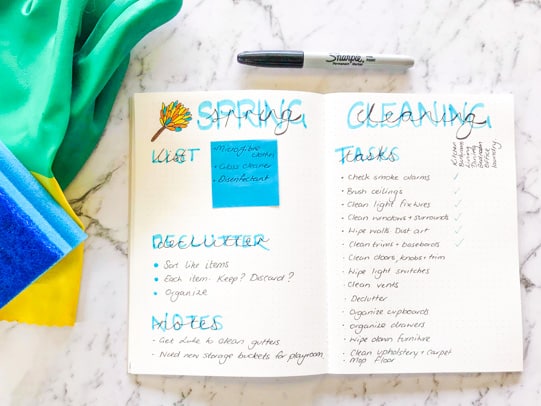 Sharpie
Permanent Marker
SPRING
spring
LIST
list
• Microfibre cloths
• Glass cleaner
• Disinfectant
DECLUTTER
declutter
• Sort like items
• Each item. Keep? Discard?
• Organize
NOTES
notes
• Get Luke to clean gutters
• Need new storage buckets for playroom
CLEANING
cleaning
TASKS
tasks
Kitchen
Bathrooms
Living
Dining
Bedroom
Office
Laundry
• Check smoke alarms ✓
• Brush ceilings ✓
• Clean light fixtures ✓
• Clean windows + surrounds ✓
• Wipe walls. Dust art ✓
• Clean trims + baseboards ✓
• Clean doors, knobs + trim
• Wipe light switches
• Clean vents
• Declutter
• Organize cupboards
• Organize drawers
• Wipe down furniture
• Clean upholstery + carpet
• Mop floor